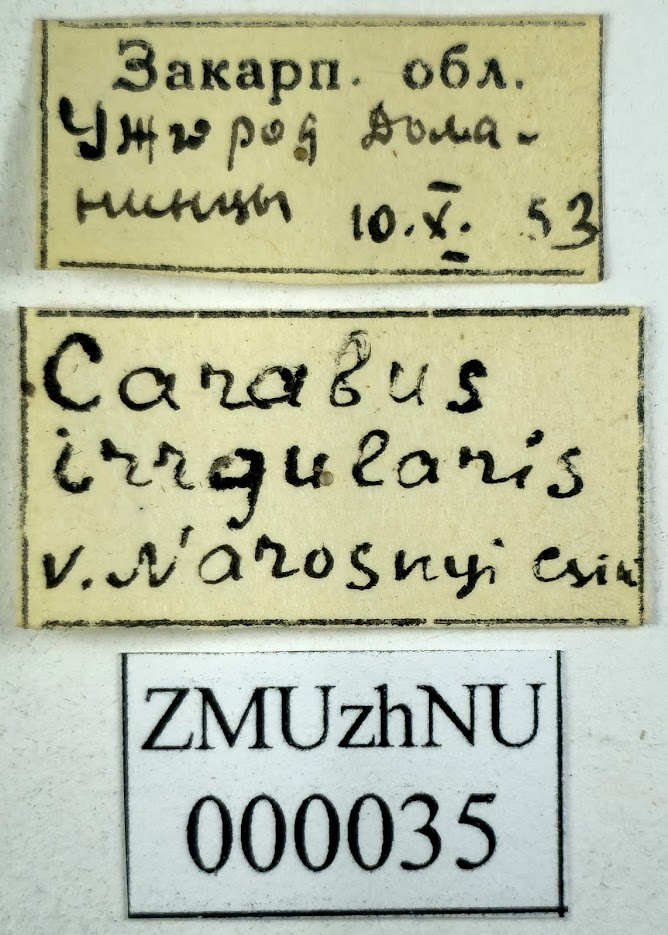 Закарп. обл.
Ужгород Дома-
нинцы 10.X. 53
Carabus
irrgularis
v. Narosnyi Csiki
ZMUzhNU
000035